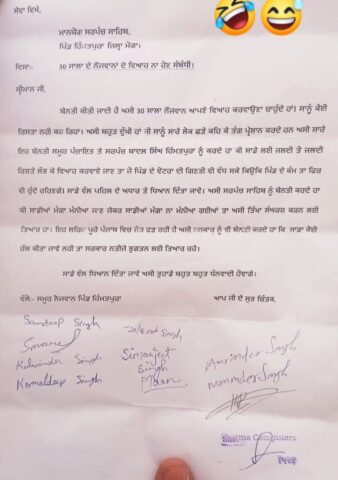 ਸੇਵਾ ਵਿਖੇ,
ਮਾਨਯੋਗ ਸਰਪੰਚ ਸਾਹਿਬ,
ਪਿੰਡ ਹਿੰਮਤਪੁਰਾ ਜਿਲ੍ਹਾ ਮੋਗਾ।
ਵਿਸ਼ਾ:- 30 ਸਾਲਾ ਦੇ ਨੌਜਵਾਨਾਂ ਦੇ ਵਿਆਹ ਨਾ ਹੋਣ ਸੰਬੰਧੀ।
ਸ੍ਰੀਮਾਨ ਜੀ,
ਬੇਨਤੀ ਕੀਤੀ ਜਾਂਦੀ ਹੈ ਅਸੀ 30 ਸਾਲਾ ਨੌਜਵਾਨ ਆਪਣੇ ਵਿਆਹ ਕਰਵਾਉਣਾ ਚਾਹੁੰਦੇ ਹਾਂ। ਸਾਨੂੰ ਕੋਈ
ਰਿਸਤਾ ਨਹੀ ਕਰ ਰਿਹਾ। ਅਸੀ ਬਹੁਤ ਦੁੱਖੀ ਹਾਂ ਕੀ ਸਾਨੂੰ ਸਾਰੇ ਲੋਕ ਛੜੇ ਕਹਿ ਕੇ ਤੰਗ ਪ੍ਰੇਸ਼ਾਨ ਕਰਦੇ ਹਨ ਅਸੀ ਸਾਰੇ
ਇਹ ਬੇਨਤੀ ਸਮੂਹ ਪੰਚਾਇਤ ਤੇ ਸਰਪੰਚ ਬਾਦਲ ਸਿੰਘ ਹਿੰਮਤਪੁਰਾ ਨੂੰ ਕਰਦੇ ਹਾਂ ਕੀ ਸਾਡੇ ਲਈ ਜਲਦੀ ਤੋਂ ਜਲਦੀ
ਰਿਸਤੇ ਲੱਭ ਕੇ ਵਿਆਹ ਕਰਵਾਏ ਜਾਣ ਤਾਂ ਜੋ ਪਿੰਡ ਦੇ ਵੋਟਰਾਂ ਦੀ ਗਿਣਤੀ ਵੀ ਵੱਧ ਸਕੇ ਕਿਉਂਕਿ ਪਿੰਡ ਦੇ ਕੰਮ ਤਾਂ ਫਿਰ
ਵੀ ਹੁੰਦੇ ਰਹਿਣਗੇ। ਸਾਡੇ ਵੱਲ ਪਹਿਲ ਦੇ ਅਧਾਰ ਤੇ ਧਿਆਨ ਦਿੱਤਾ ਜਾਵੇ। ਅਸੀ ਸਰਪੰਚ ਸਾਹਿਬ ਨੂੰ ਬੇਨਤੀ ਕਰਦੇ ਹਾਂ
ਕੀ ਸਾਡੀਆਂ ਮੰਗਾ ਮੰਨੀਆ ਜਾਣ ਜੇਕਰ ਸਾਡੀਆਂ ਮੰਗਾ ਨਾ ਮੰਨੀਆ ਗਈਆਂ ਤਾਂ ਅਸੀ ਤਿੱਖਾ ਸੰਘਰਸ਼ ਕਰਨ ਲਈ
ਤਿਆਰ ਹਾਂ। ਇਹ ਲਹਿਰ ਪੂਰੇ ਪੰਜਾਬ ਵਿਚ ਜੋਰ ਫੜ ਰਹੀ ਹੈ ਅਸੀ ਸਰਕਾਰ ਨੂੰ ਵੀ ਬੇਨਤੀ ਕਰਦੇ ਹਾਂ ਕਿ ਸਾਡਾ ਕੋਈ
ਹੱਲ ਕੀਤਾ ਜਾਵੇ ਨਹੀ ਤਾਂ ਸਰਕਾਰ ਨਤੀਜੇ ਭੁਗਤਨ ਲਈ ਤਿਆਰ ਰਹੇ।
ਸਾਡੇ ਵੱਲ ਧਿਆਨ ਦਿੱਤਾ ਜਾਵੇ ਅਸੀ ਤੁਹਾਡੇ ਬਹੁਤ ਬਹੁਤ ਧੰਨਵਾਦੀ ਹੋਵਾਂਗੇ।
ਵੱਲੋਂ:- ਸਮੂਹ ਨੌਜਵਾਨ ਪਿੰਡ ਹਿੰਮਤਪੁਰਾ ਆਪ ਜੀ ਦੇ ਸੁਭ ਚਿੰਤਕ,
Sandeep Singh
Singh
Kulwinder Singh
Kamaldeep Singh
Simarjeet
Singh
Maan
Amrinder Singh
Singh
Sharma Computers
Prop